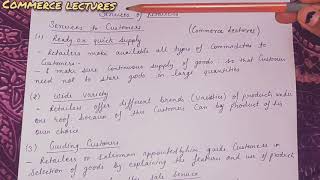 COMMERCE LECTURES
Services of Retailers
Services to Customers
(Commerce Lectures)
(1) Ready or quick Supply
- Retailers make available all types of Commodities to
Customers.
- & make sure continuous supply of goods. so that Customer
need not to store goods in large quantities
(2) Wide Variety
- Retailers offer different brands (Varieties) of products under
One roof. because of this Customer Can buy product of his
own choice
(3) Guiding Customers
- Retailers or Salesman appointed by him guide Customers in
Selection of goods by explaining the features and use of product
Sale Service